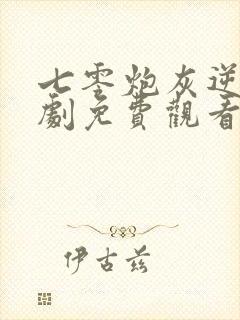 七零炮灰逆
劇免費觀看
伊古兹